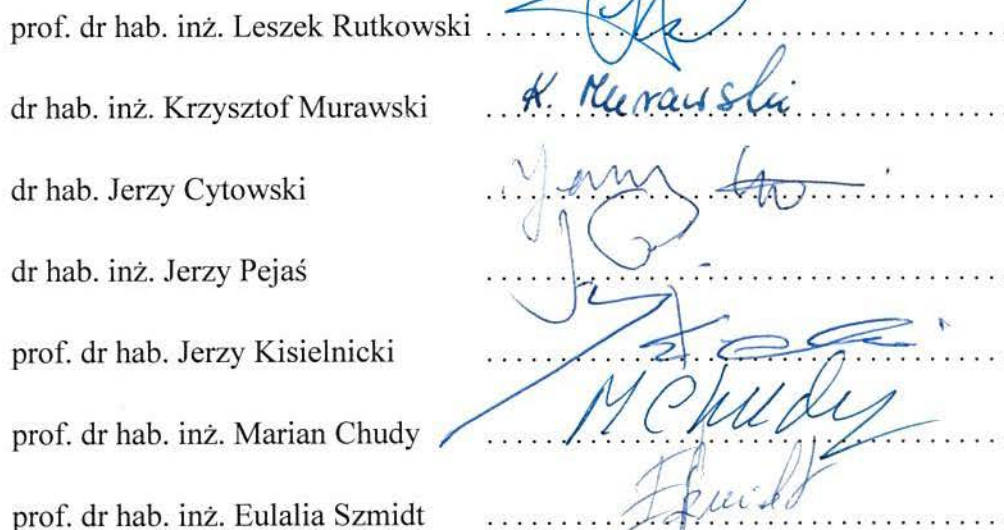 prof. dr hab. inż. Leszek Rutkowski ........................................
dr hab. inż. Krzysztof Murawski K. Murawski
dr hab. Jerzy Cytowski ........................................
dr hab. inż. Jerzy Pejaś ........................................
prof. dr hab. Jerzy Kisielnicki ........................................
prof. dr hab. inż. Marian Chudy MChudy
prof. dr hab. inż. Eulalia Szmidt ........................................